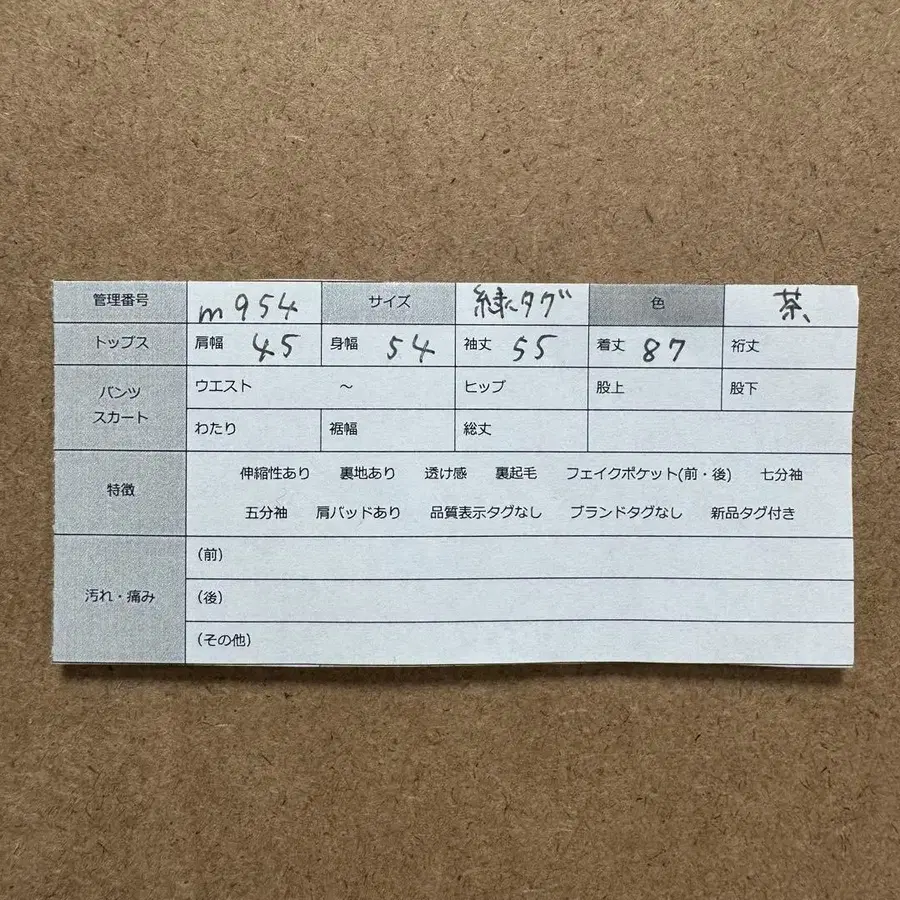 管理番号 m954 サイズ 緑タグ 色 茶、
トップス 肩幅 45 身幅 54 袖丈 55 着丈 87 裄丈
パンツ スカート ウエスト ～ ヒップ 股上 股下
わたり 裾幅 総丈
特徴 伸縮性あり 裏地あり 透け感 裏起毛 フェイクポケット(前・後) 七分袖
五分袖 肩パッドあり 品質表示タグなし ブランドタグなし 新品タグ付き
汚れ・痛み (前)
(後)
(その他)